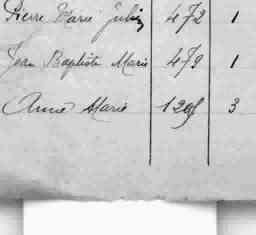 Pierre Marie Julien 472 1
Jean Baptiste Marie 479 1
Anne Marie 3